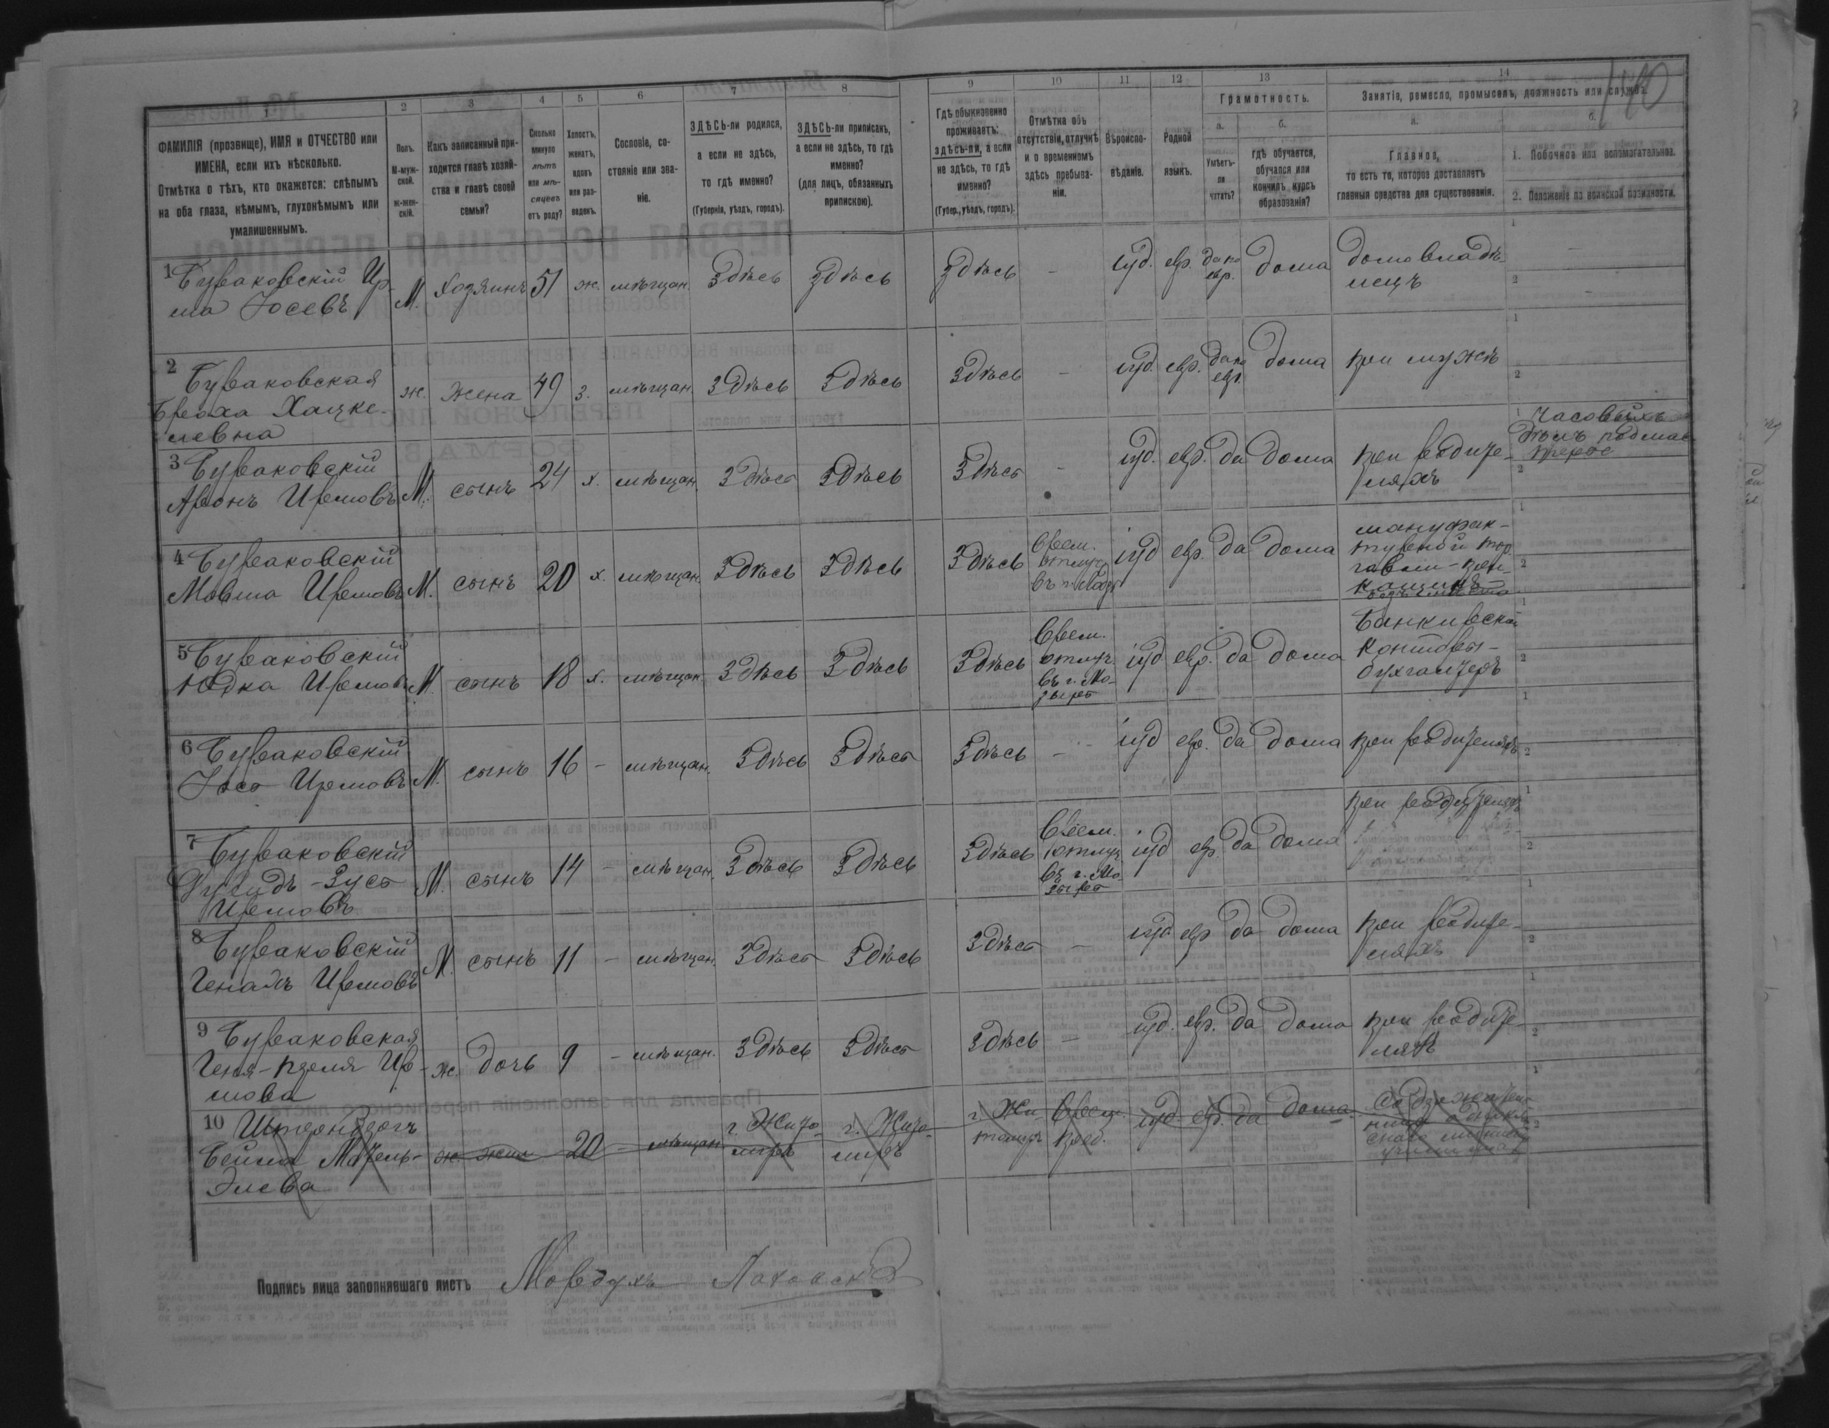 140
1 2 3 4 5 6 7 8 9 10 11 12 13 14
ФАМИЛІЯ (прозвище), ИМЯ и ОТЧЕСТВО или
ИМЕНА, если ихъ нѣсколько.
Отмѣтка о тѣхъ, кто окажется: слѣпымъ
на оба глаза, нѣмымъ, глухонѣмымъ или
умалишеннымъ.
Полъ.
М-муж-
ской.
ж-жен-
скій.
Какъ записанный при-
ходится главѣ хозяй-
ства и главѣ своей
семьи?
Сколько
минуло
лѣтъ
или мѣ-
сяцевъ
отъ роду?
Холостъ,
женатъ,
вдовъ
или раз-
веденъ.
Сословіе, со-
стояніе или зва-
ніе.
ЗДѢСЬ-ли родился,
а если не здѣсь,
то гдѣ именно?
(Губернія, уѣздъ, городъ).
ЗДѢСЬ-ли приписанъ,
а если не здѣсь, то гдѣ
именно?
(для лицъ, обязанныхъ
припискою).
Гдѣ обыкновенно
проживаетъ:
здѣсь-ли, а если
не здѣсь, то гдѣ
именно?
(Губер., уѣздъ, городъ).
Отмѣтка объ
отсутствіи, отлучкѣ
и о временномъ
здѣсь пребыва-
ніи.
Вѣроиспо-
вѣданіе.
Родной
языкъ.
Грамотность.
а.
Умѣетъ-
ли
читать?
б.
гдѣ обучается,
обучался или
кончилъ курсъ
образованія?
Занятіе, ремесло, промыселъ, должность или служба.
а.
Главное,
то есть то, которое доставляетъ
главныя средства для существованія.
б.
1. Побочное или вспомогательное.
2. Положеніе по воинской повинности.
1 Бураковскій Ир-
ма Іосевъ М. Хозяинъ 51 ж. мѣщан. Здѣсь Здѣсь Здѣсь - іуд. евр. да по евр. дома домовладѣ-
лецъ
2 Бураковская
Броха Хацке-
левна ж. жена 49 з. мѣщан. Здѣсь Здѣсь Здѣсь - іуд. евр. да по евр. дома при мужѣ
3 Бураковскій
Аронъ Ирмовъ М. сынъ 24 х. мѣщан. Здѣсь Здѣсь Здѣсь - іуд. евр. да дома при родите-
ляхъ
Часовыхъ
дѣлъ подмас-
терье
4 Бураковскій
Мовша Ирмовъ М. сынъ 20 х. мѣщан. Здѣсь Здѣсь Здѣсь Врем.
отлуч. іуд евр. да дома мануфак-
турной тор-
говли - при-
кащикъ
5 Бураковскій
Юдка Ирмовъ М. сынъ 18 х. мѣщан. Здѣсь Здѣсь Здѣсь Врем.
отлуч.
въ г. Мо-
зырѣ іуд евр. да дома Банкирской
конторы-
бухгалтеръ
6 Бураковскій
Ирмовъ М. сынъ 16 - мѣщан. Здѣсь Здѣсь Здѣсь - іуд евр. да дома при родителяхъ
7 Бураковскій
Ирмовъ М. сынъ 14 - мѣщан. Здѣсь Здѣсь Здѣсь Врем.
отлуч.
въ г. Мо-
зырѣ іуд евр. да дома при родителяхъ
8 Бураковскій
Генахъ Ирмовъ М. сынъ 11 - мѣщан. Здѣсь Здѣсь Здѣсь - іуд евр да дома при родите-
ляхъ
9 Бураковская
Геня-Песля Ир-
мова ж. дочь 9 - мѣщан. Здѣсь Здѣсь Здѣсь - іуд. евр. да дома при родите-
ляхъ
10 Штернбергъ
Бейла
ж. 20 - мѣщан. г. Жито-
миръ г. Жито-
миръ г. Жи
томиръ Врем.
преб. іуд евр. да дома
Подпись лица заполнявшаго листъ Мордухъ